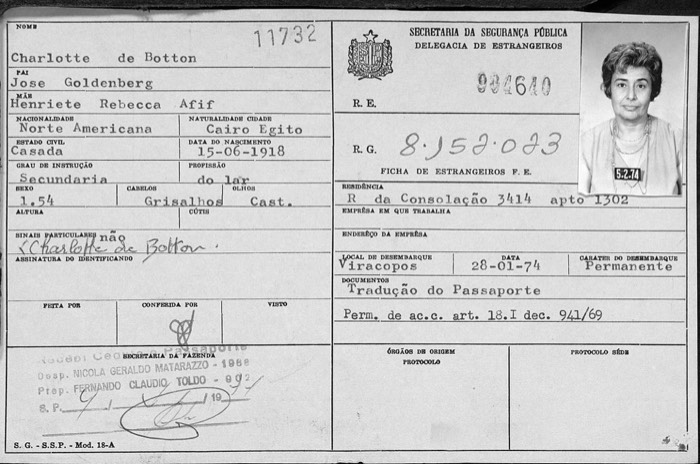 NOME
11732
Charlotte de Botton
PAI
Jose Goldenberg
MÃE
Henriete Rebecca Afif
NACIONALIDADE NATURALIDADE CIDADE
Norte Americana Cairo Egito
ESTADO CIVIL DATA DO NASCIMENTO
Casada 15-06-1918
GRAU DE INSTRUÇÃO PROFISSÃO
Secundaria do lar
SEXO CABELOS OLHOS
1.54 Grisalhos Cast.
ALTURA CÚTIS
SINAIS PARTICULARES não
Charlotte de Botton
ASSINATURA DO IDENTIFICANDO
FEITA POR CONFERIDA POR VISTO
SECRETARIA DA FAZENDA
Desp. NICOLA GERALDO MATARAZZO - 1968
Prep. FERNANDO CLAUDIO TOLDO - 992
S. P. 19
S. G. - S.S.P. - Mod. 18-A
SECRETARIA DA SEGURANÇA PÚBLICA
DELEGACIA DE ESTRANGEIROS
R. E. 904640
R. G. 8.152.023
FICHA DE ESTRANGEIROS F. E.
5.2.74
RESIDÊNCIA
R da Consolação 3414 apto 1302
EMPRÊSA EM QUE TRABALHA
ENDERÊÇO DA EMPRÊSA
LOCAL DE DESEMBARQUE DATA CARATER DO DESEMBARQUE
Viracopos 28-01-74 Permanente
DOCUMENTOS
Tradução do Passaporte
Perm. de ac.c. art. 18.I dec. 941/69
ÓRGÃOS DE ORIGEM PROTOCOLO SÉDE
PROTOCOLO